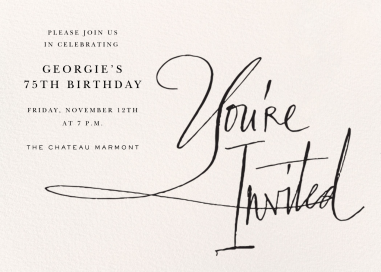 PLEASE JOIN US
IN CELEBRATING
GEORGIE'S
75TH BIRTHDAY
FRIDAY, NOVEMBER 12TH
AT 7 P.M.
THE CHATEAU MARMONT
You're
Invited